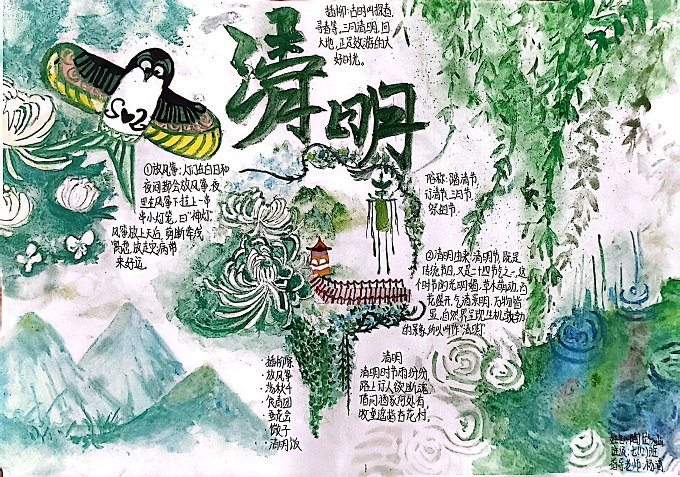 清明
插柳:古时叫探春、
寻春等,三月清明,回
大地,正是效游的大
好时光。
S 2
①放风筝:人们在白日和
夜间都会放风筝,夜
里在风筝下挂上一串
串小灯笼,曰"神灯",
风筝放上天后,剪断牵线
寓意,放走灾病带
来好运。
俗称:踏清节、
行清节、三月节、
祭祖节
②清明由来:清明节,既是
传统节日,又是二十四节气之一,这
个时节阳光明媚,草木萌动,百
花盛开,气清景明,万物皆
显,自然界呈现生机勃勃
的景象,所以叫作"清明"
插柳
放风筝
荡秋千
食青团
馓子
清明饭
清明
清明时节雨纷纷,
路上行人欲断魂。
借问酒家何处有,
牧童遥指杏花村。
班级:七(1)班
指导老师:杨